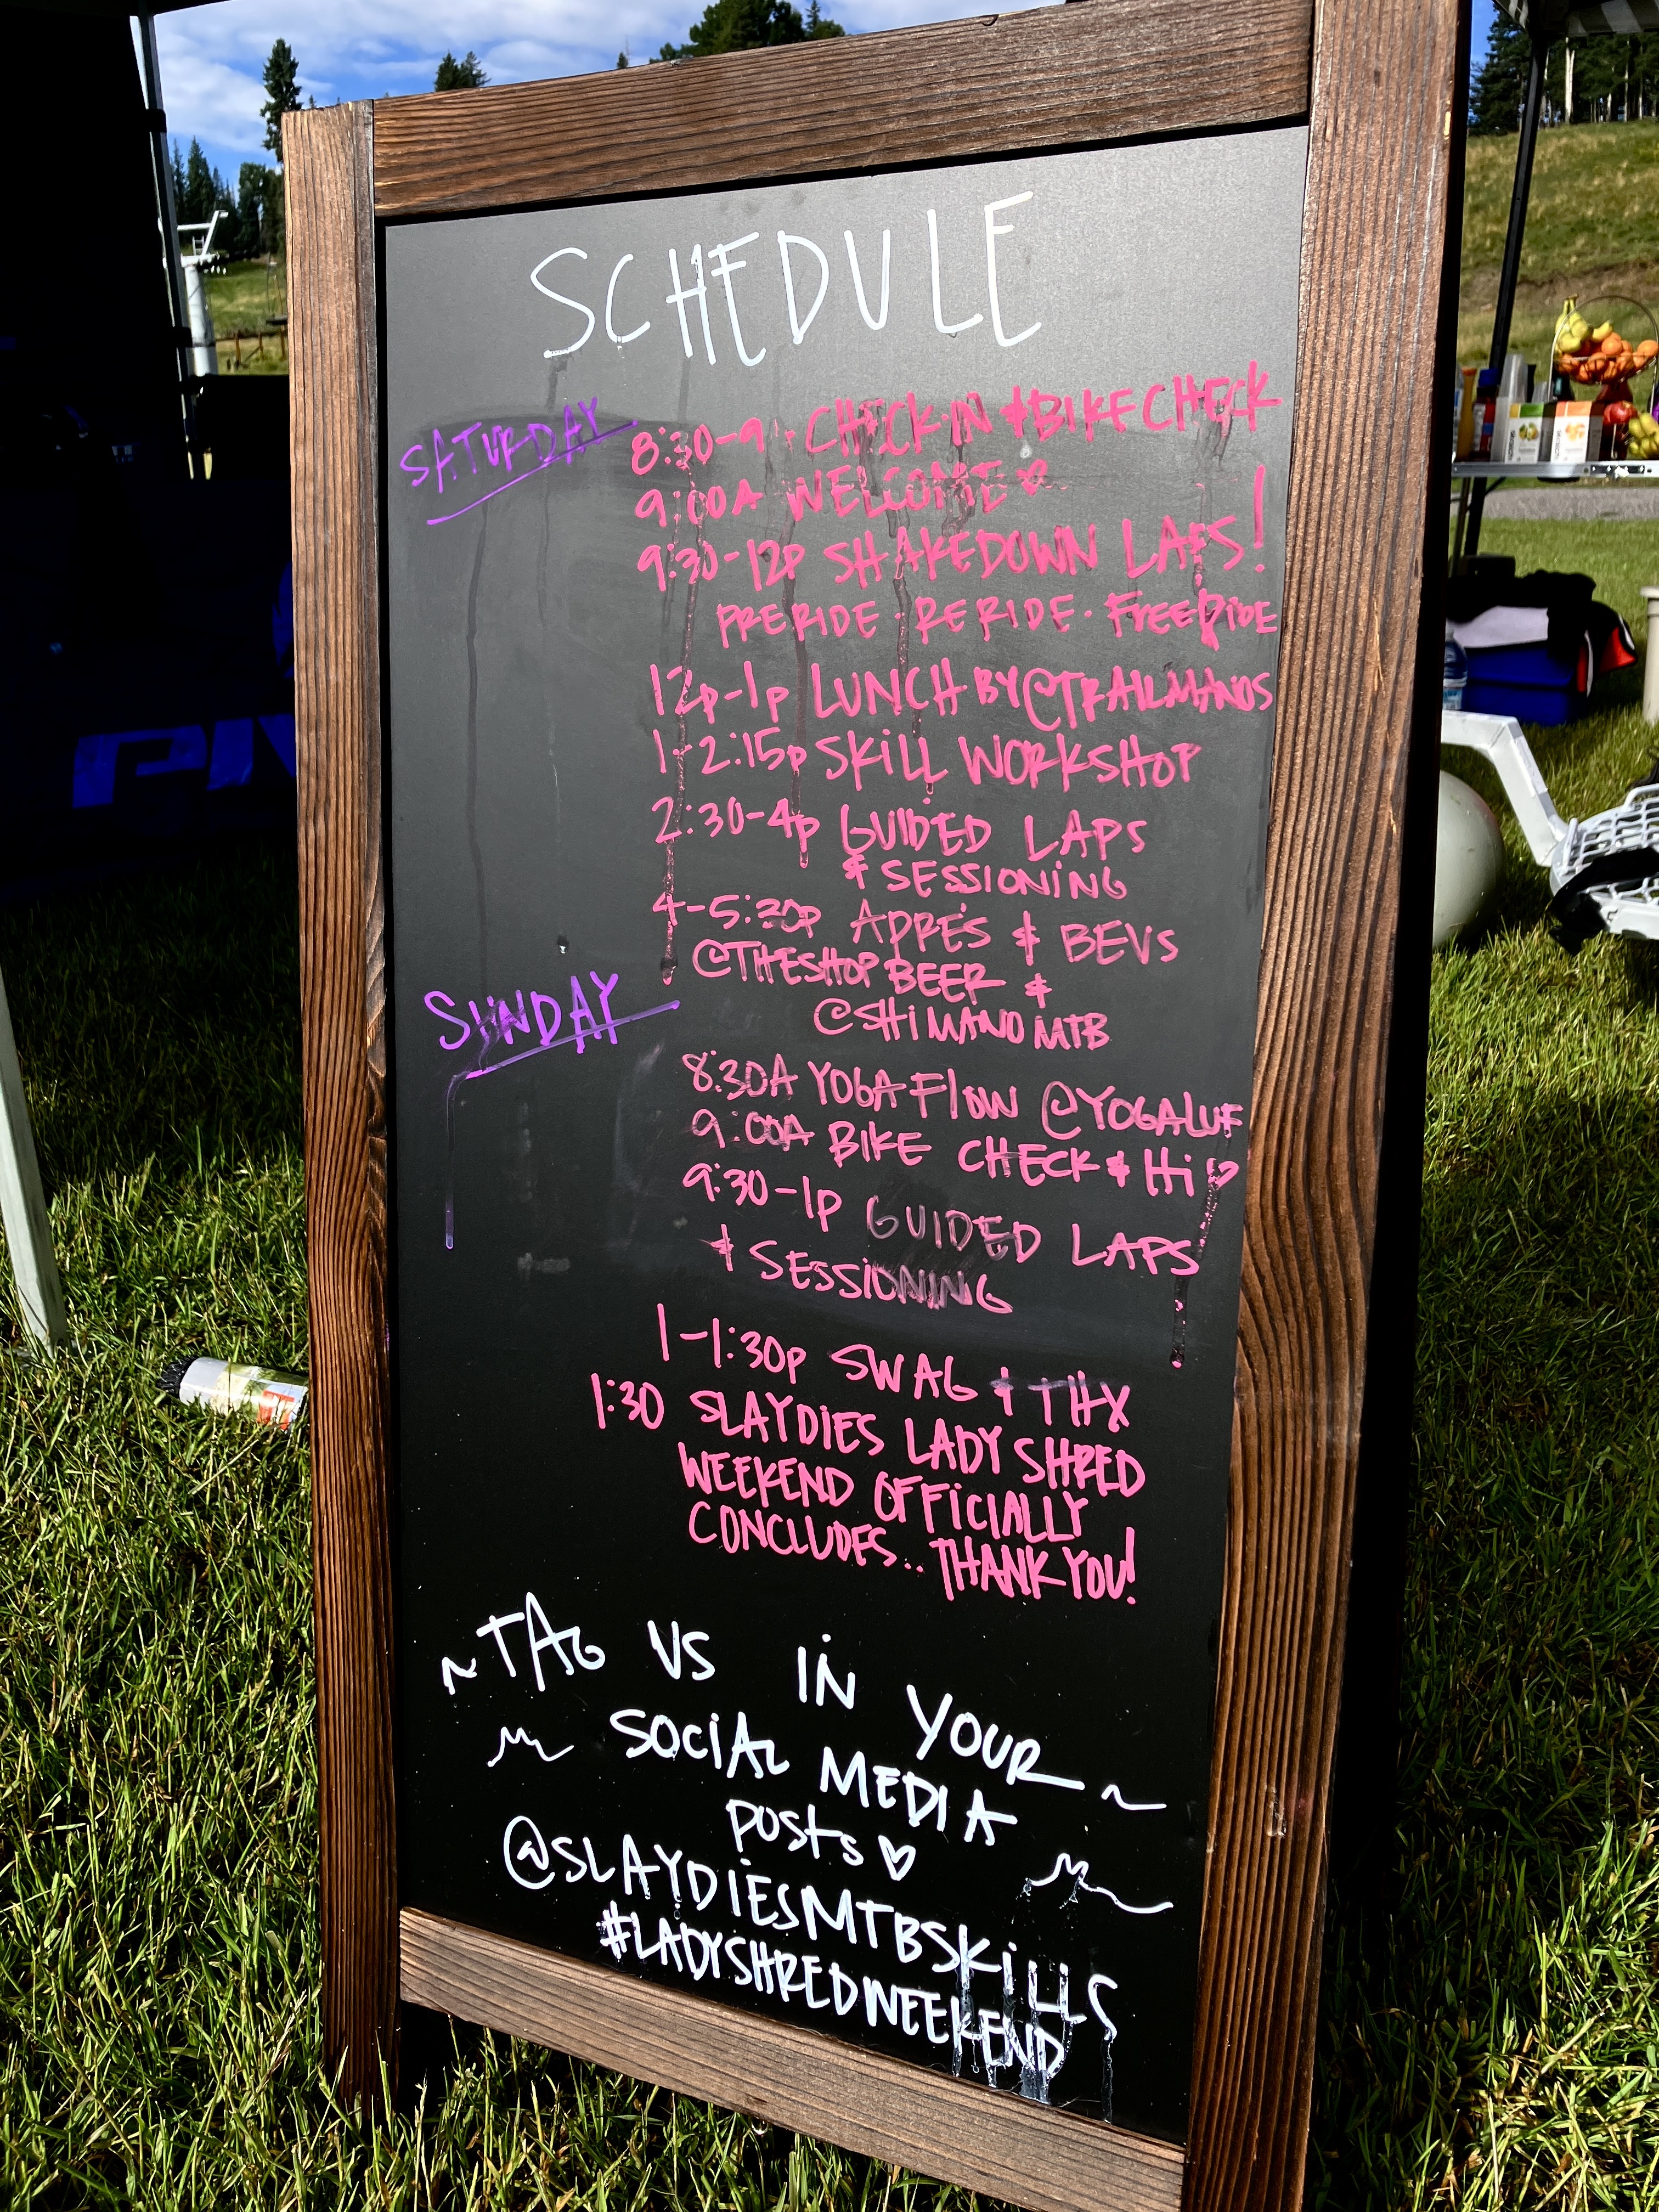 SCHEDULE
SATURDAY
8:30-9A CHECK-IN & BIKE CHECK
9:00A WELCOME
9:30-12P SHAKEDOWN LAPS!
PRERIDE · RERIDE · FREERIDE
12P-1P LUNCH BY @TRAILMANOS
1-2:15P SKILL WORKSHOP
2:30-4P GUIDED LAPS
& SESSIONING
4-5:30P APRÉS & BEVS
@THESHOPBEER &
@SHIMANOMTB
SUNDAY
8:30A YOGA FLOW @YOGALUF
9:00A BIKE CHECK & HI
9:30-1P GUIDED LAPS
& SESSIONING
1-1:30P SWAG & THX
1:30 SLAYDIES LADY SHRED
WEEKEND OFFICIALLY
CONCLUDES.. THANK YOU!
~TAG US IN YOUR~
SOCIAL MEDIA
POSTS
@SLAYDIESMTBSKILLS
#LADYSHREDWEEKEND